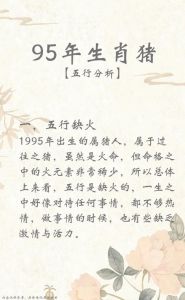 95年生肖猪
【五行分析】
一、五行缺火
1995年出生的属猪人，属于过
往之猪，虽然是火命，但命格之
中的火元素非常稀少，所以总体
上来看，五行是缺火的，一生之
中好像对待任何事情，都不够热
情，做事情的时候，也有些缺乏
激情与活力。